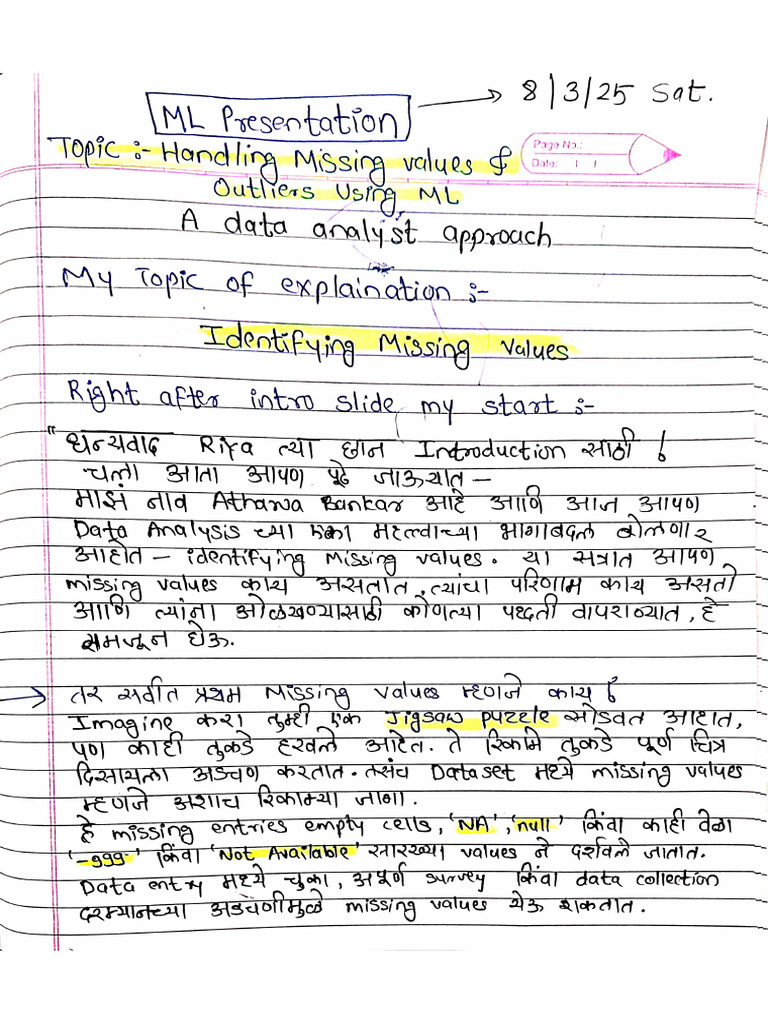 ML Presentation → 8/3/25 Sat.
Topic :- Handling Missing values &
Page No.:
Date: / /
Outliers Using ML
A data analyst approach
My Topic of explaination :-
Identifying Missing values
Right after intro slide my start :-
"धन्यवाद Riya त्या छान Introduction साठी !
चला आता आपण पूढे जाऊयात –
माझं नाव Atharva Bankar आहे आणि आज आपण
Data Analysis च्या एका महत्वाच्या भागाबद्दल बोलणार
आहोत – identifying missing values. या सत्रात आपण
missing values काय असतात, त्यांचा परिणाम काय असतो
आणि त्यांना ओळखण्यासाठी कोणत्या पध्दती वापराव्यात, हे
समजून घेऊ.
→ तर सर्वात प्रथम Missing values म्हणजे काय !
Imagine करा तुम्ही एक Jigsaw puzzle सोडवत आहात,
पण काही तुकडे हरवले आहेत. ते रिकामे तुकडे पूर्ण चित्र
दिसायला अडचण करतात. तसंच Dataset मध्ये missing values
म्हणजे अशाच रिकाम्या जागा.
हे missing entries empty cells, 'NA', 'null' किंवा काही वेळा
'-999-' किंवा 'Not Available' सारख्या values ने दर्शविले जातात.
Data entry मध्ये चुका, अपूर्ण survey किंवा data collection
दरम्यानच्या अडचणींमुळे missing values येऊ शकतात.